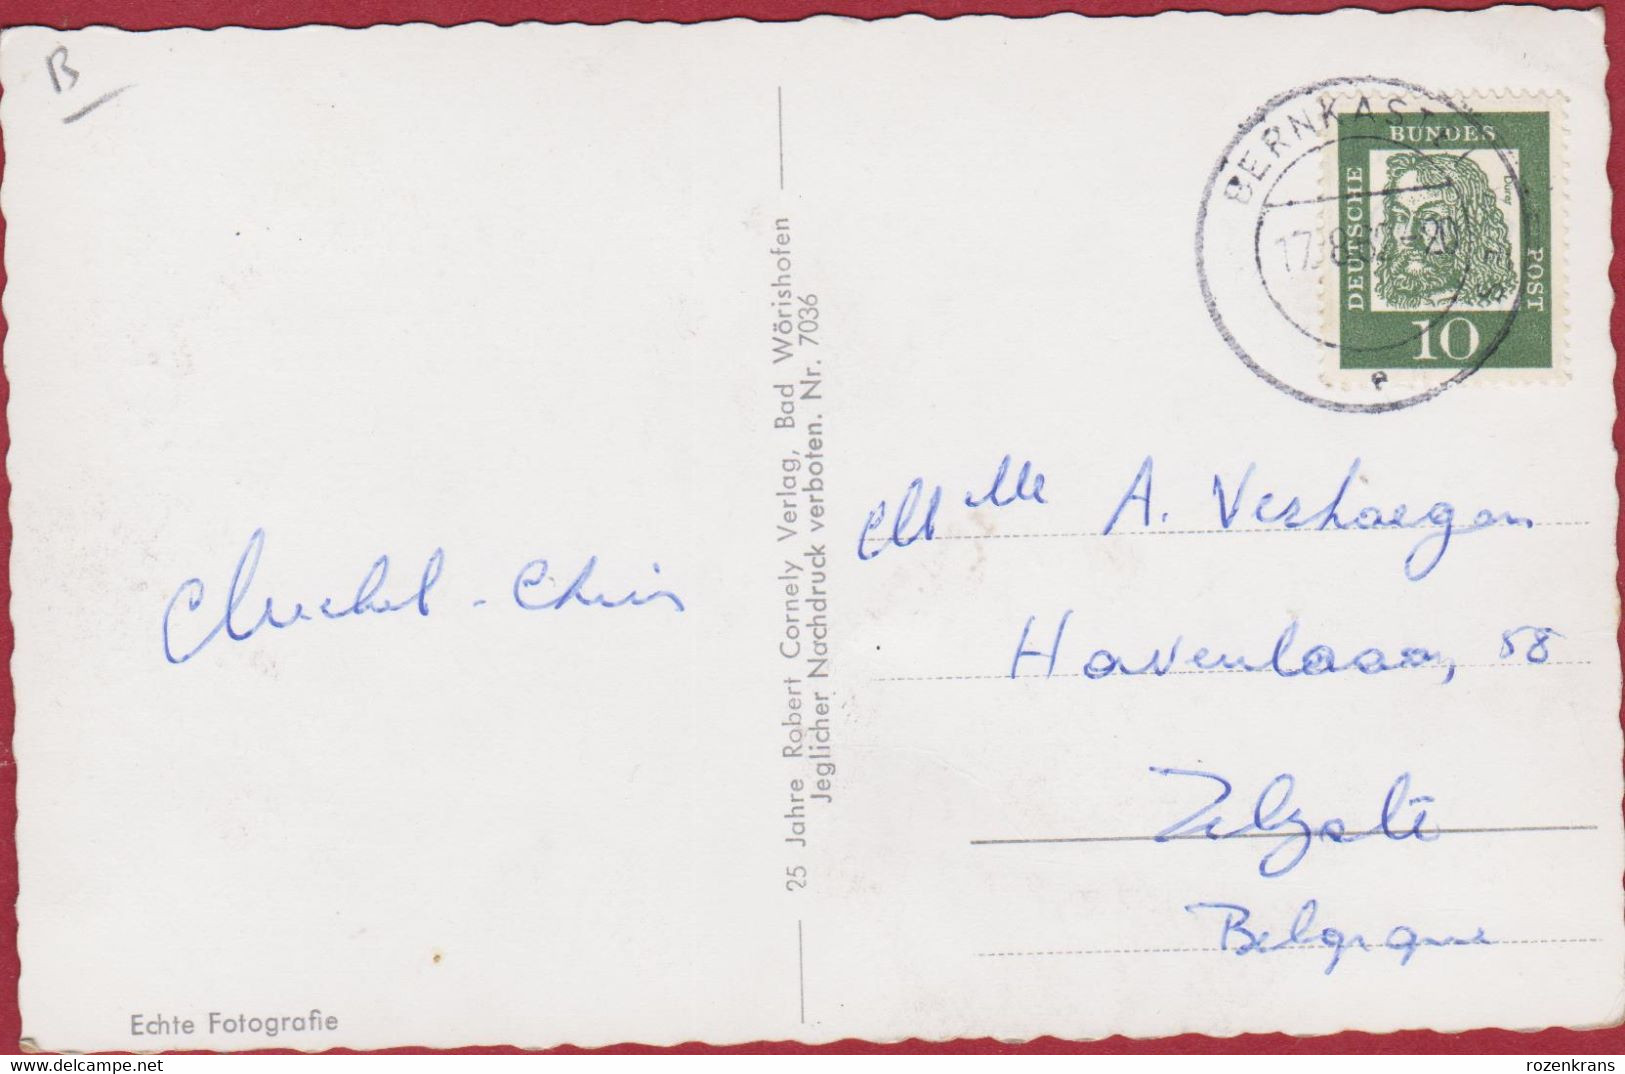 B
BERNKASTEL-KUES
17.8.62-20
e
DEUTSCHE
BUNDES
POST
Dürer
10
25 Jahre Robert Cornely Verlag, Bad Wörishofen
Jeglicher Nachdruck verboten. Nr. 7036
Mlle A. Verhaegen
Havenlaan, 58
Zelzate
Belgique
Michel - Chris
Echte Fotografie
rozenkrans